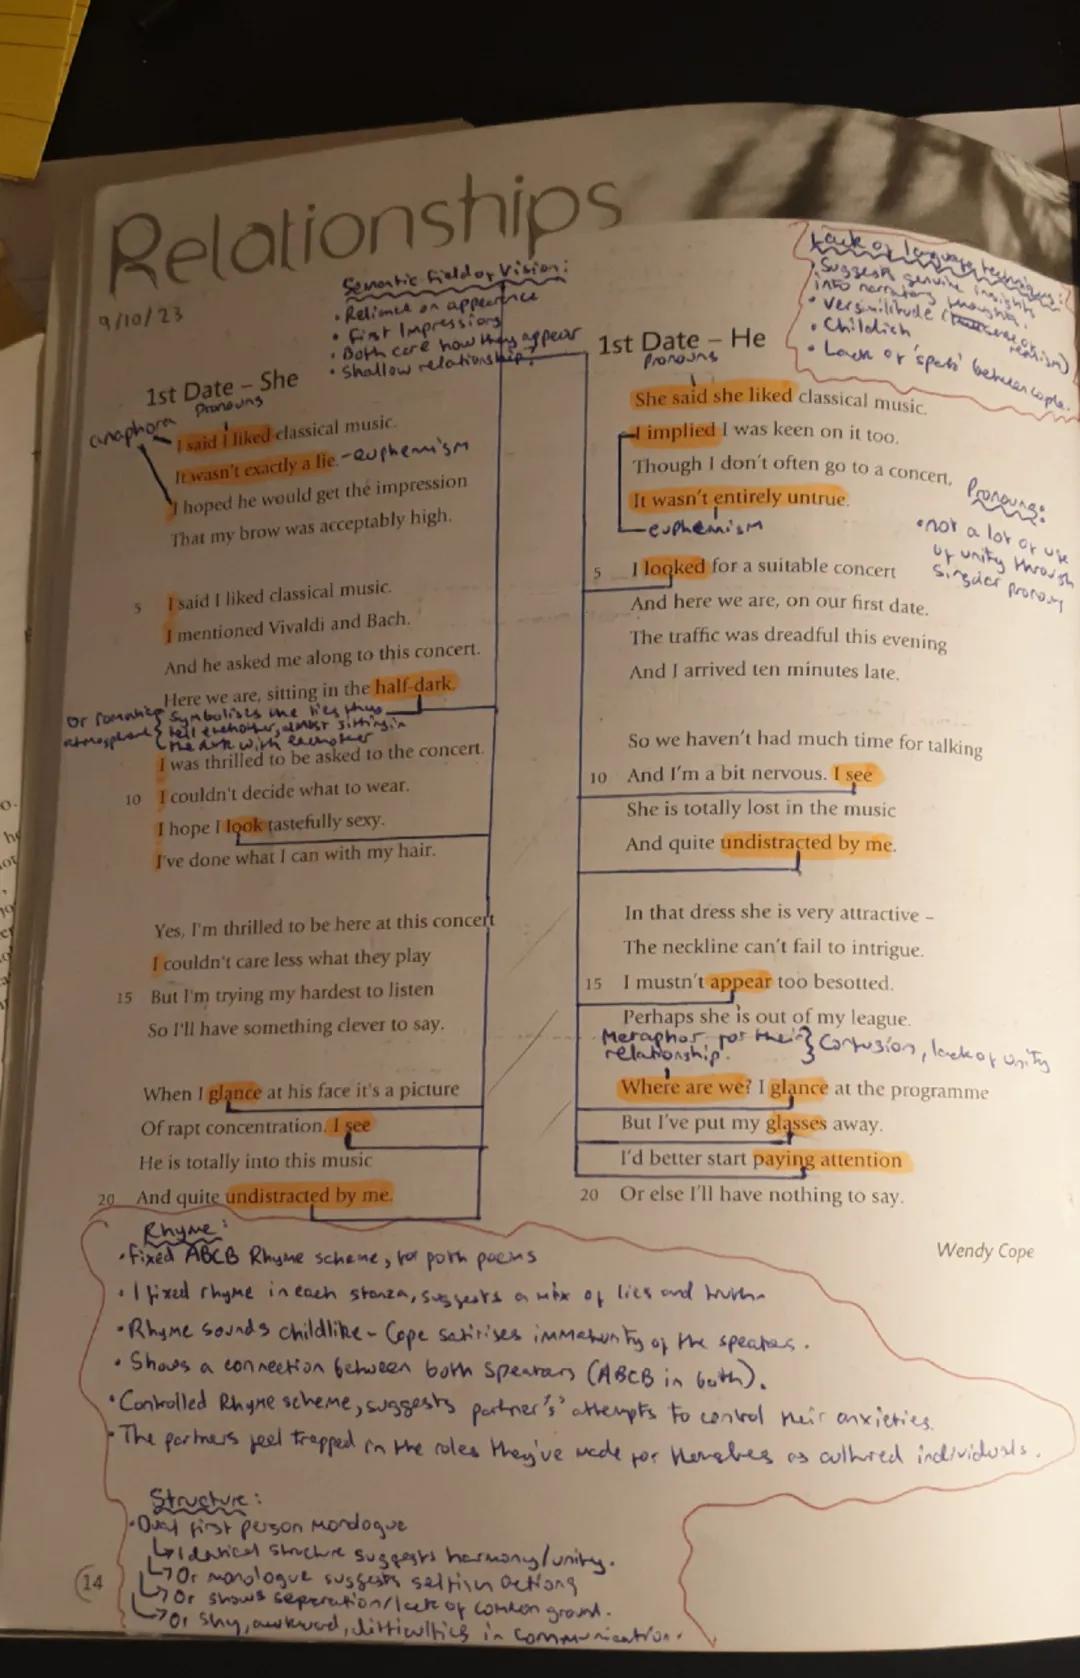 Relationships
9/10/23
Semantic field of Vision:
• Reliance on appearence
• First Impressions
• Both care how they appear
• Shallow relationship?
1st Date – She
Pronouns
anaphora
I said I liked classical music.
It wasn't exactly a lie. - euphemism
I hoped he would get the impression
That my brow was acceptably high.
5 I said I liked classical music.
I mentioned Vivaldi and Bach.
And he asked me along to this concert.
Here we are, sitting in the half-dark.
Or romantic atmosphere
Symbolises the lies
tell eachother, almost sitting in
the dark with eachother
I was thrilled to be asked to the concert.
10 I couldn't decide what to wear.
I hope I look tastefully sexy.
I've done what I can with my hair.
Yes, I'm thrilled to be here at this concert
I couldn't care less what they play
15 But I'm trying my hardest to listen
So I'll have something clever to say.
When I glance at his face it's a picture
Of rapt concentration. I see
He is totally into this music
20 And quite undistracted by me.
Lack of language techniques:
• Suggests genuine insights
into narrators thoughts.
• Verisimilitude ( realism)
• Childish
• Lack of 'spark' between couple.
1st Date – He
Pronouns
She said she liked classical music.
I implied I was keen on it too.
Though I don't often go to a concert,
It wasn't entirely untrue.
euphemism
Pronouns:
• not a lot of use
of unity through
5 I looked for a suitable concert
And here we are, on our first date.
The traffic was dreadful this evening
And I arrived ten minutes late.
So we haven't had much time for talking
10 And I'm a bit nervous. I see
She is totally lost in the music
And quite undistracted by me.
In that dress she is very attractive –
The neckline can't fail to intrigue.
15 I mustn't appear too besotted.
Perhaps she is out of my league.
Metaphor for their } Confusion, lack of unity
relationship.
Where are we? I glance at the programme
But I've put my glasses away.
I'd better start paying attention
20 Or else I'll have nothing to say.
Wendy Cope
Rhyme:
• Fixed ABCB Rhyme scheme, for both poems
• 1 fixed rhyme in each stanza, suggests a mix of lies and truth
• Rhyme sounds childlike - Cope satirises immaturity of the speakers.
• Shows a connection between both speakers (ABCB in both).
• Controlled Rhyme scheme, suggests partner's' attempts to control their anxieties.
• The partners feel trapped in the roles they've made for themselves as cultured individuals.
Structure:
• Dual first person monologue
↳ Identical structure suggests harmony/unity.
↳ Or monologue suggests selfish actions
↳ Or shows seperation/lack of common ground.
↳ Or shy, awkward, difficulties in communication.
14